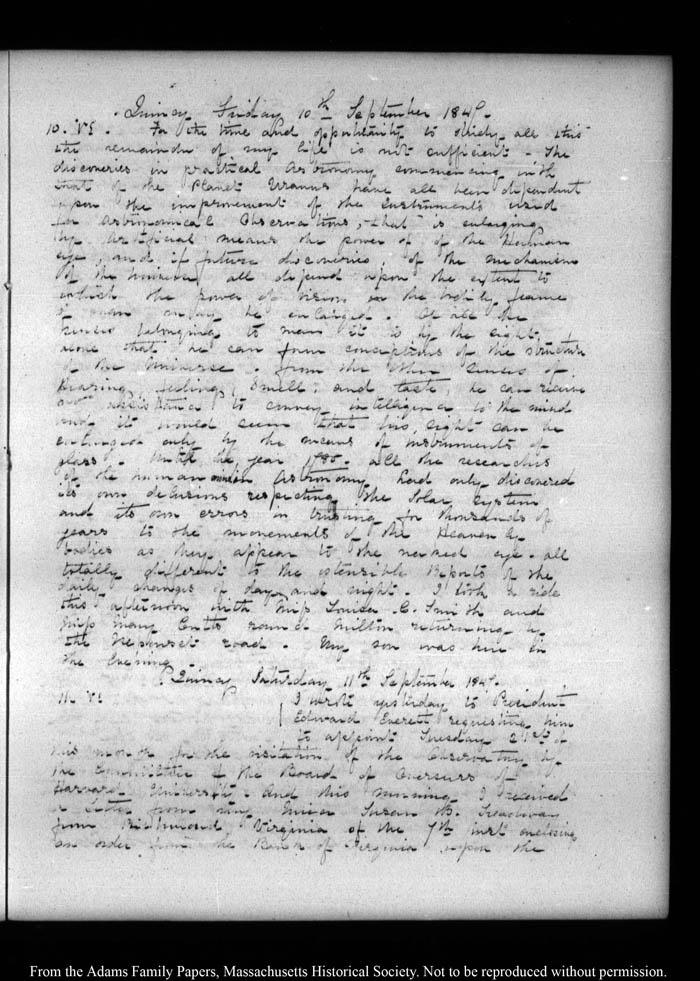 Quincy Friday 10th September 184
10. VI. For the time and opportunity to study all this
the remainder of my life is not sufficient - The
discoveries in practical Astronomy commencing with
that of the Planet Uranus have all been dependent
upon the improvement of the Instruments used
for Astronomical Observations, that is enlarging
by artificial means the power of of the Human
eye, and if future discoveries, of the mechanism
of the Universe all depend upon the extent to
which the power of vision in the bodily frame
of man may be enlarged. Of all the
senses belonging to man it is by the sight
alone that he can form conceptions of the structure
of the Universe. From the other senses of
hearing, feeling, smell, and taste, he can receive
assistance to convey intelligence to the mind
and it would seem that his sight can be
enlarged only by the means of instruments of
glass. Until the year 1780 all the researches
of the human in Astronomy had only discovered
its own delusions respecting the Solar System
and its own errors in trusting for thousands of
years to the movements of the Heavenly
bodies as they appear to the naked eye - all
totally different to the ostensible Reports of the
daily changes of day and night. I took a ride
this afternoon with Miss Louisa C. Smith and
Miss Mary Cutts round Milton returning by
the Neponset road. My son was here in
the Evening.
Quincy Saturday 11th September 184
11. VI. I wrote yesterday to President
Edward Everett requesting him
to appoint Tuesday 21st of
this month for the visitation of the Observatory by
the Committee of the Board of Overseers of
Harvard University - and this morning I received
a letter from my Niece Susan B. Treadway
from Richmond Virginia of the 7th inst enclosing
an order from the Bank of Virginia upon the
From the Adams Family Papers, Massachusetts Historical Society. Not to be reproduced without permission.